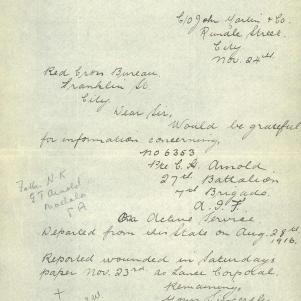 C/O John Martin & Co.
Rundle Street.
City
Nov. 24th
Red Cross Bureau.
Franklin St.
City.
Dear Sir,
Would be grateful
for information concerning,
No 6353
Pte C. H. Arnold
27th Battalion
7th Brigade.
A.I.F.
On Active Service
Departed from this State on Aug. 28th
1916.
Reported wounded in Saturdays
paper Nov. 23rd. as Lance Corporal.
Remaining,
Yours Sincerely
Father N.K.
Arnold
S A